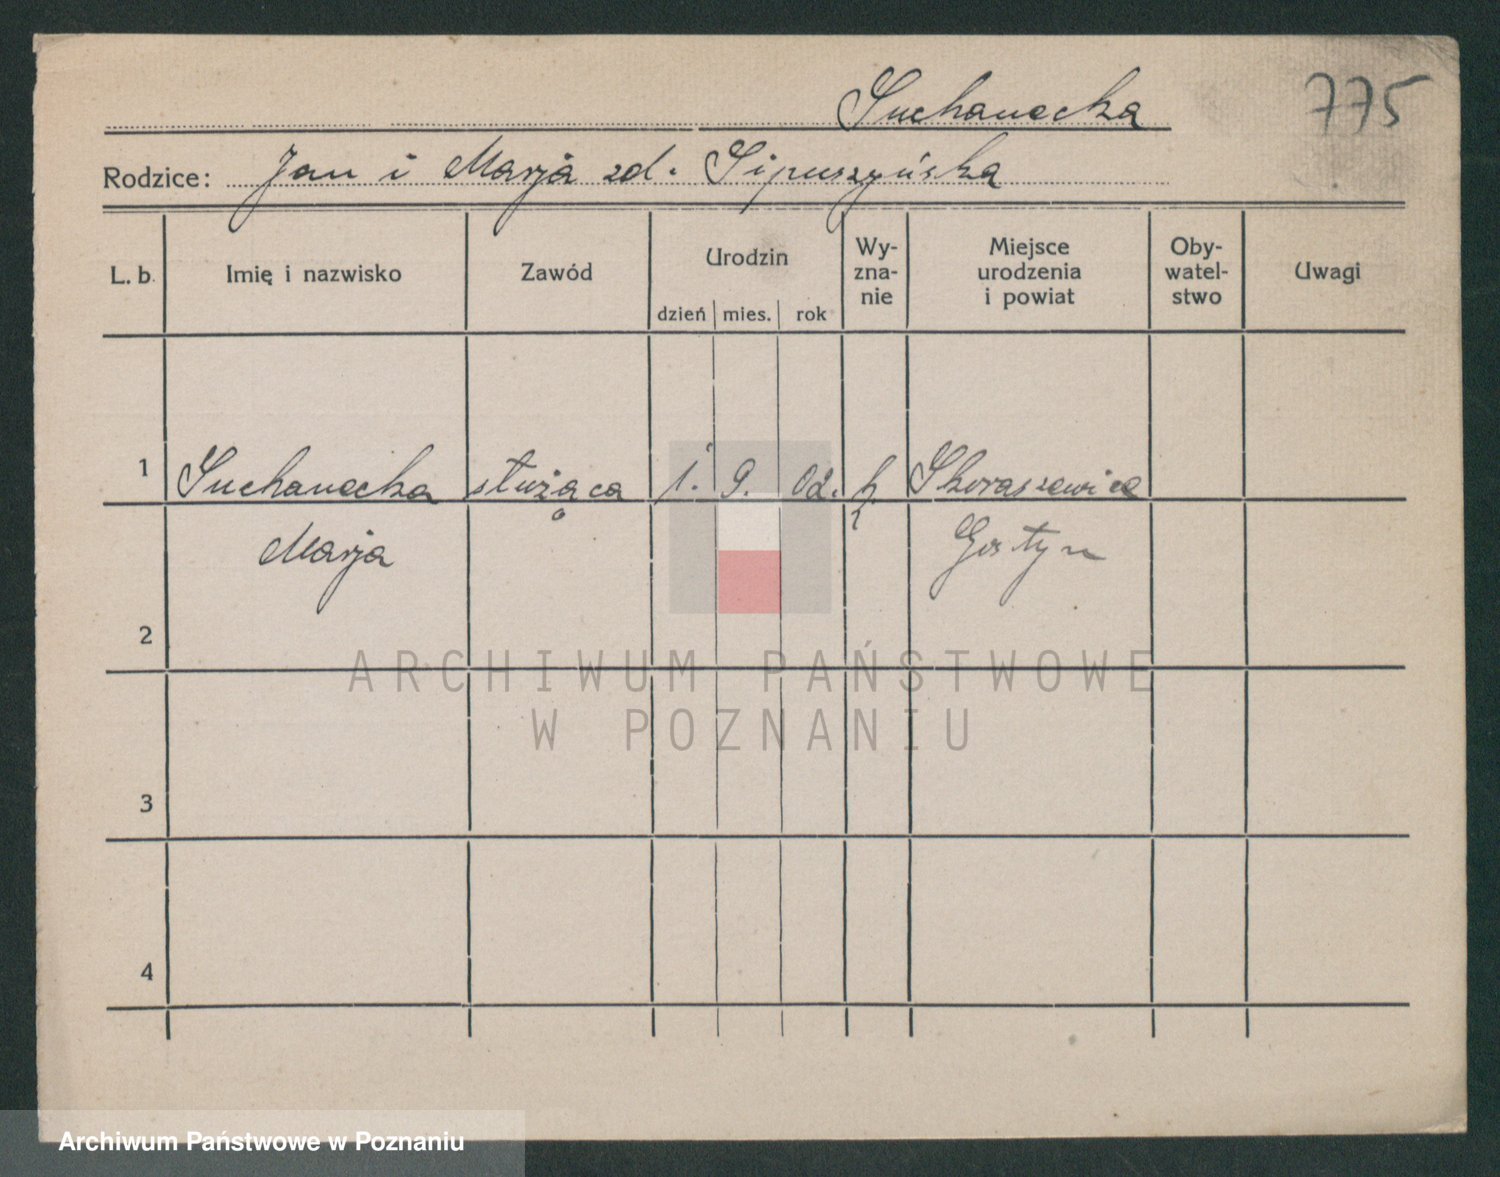 Suchanecka
775
Rodzice: Jan i Marja zd. Sipuszyńska
L. b.
Imię i nazwisko
Zawód
Urodzin
dzień mies. rok
Wy-
zna-
nie
Miejsce
urodzenia
i powiat
Oby-
watel-
stwo
Uwagi
1 Suchanecka służąca 1. 9. 02. k Skoraszewice
Marja Gostyn
2
3
4
ARCHIWUM PAŃSTWOWE
W POZNANIU
Archiwum Państwowe w Poznaniu